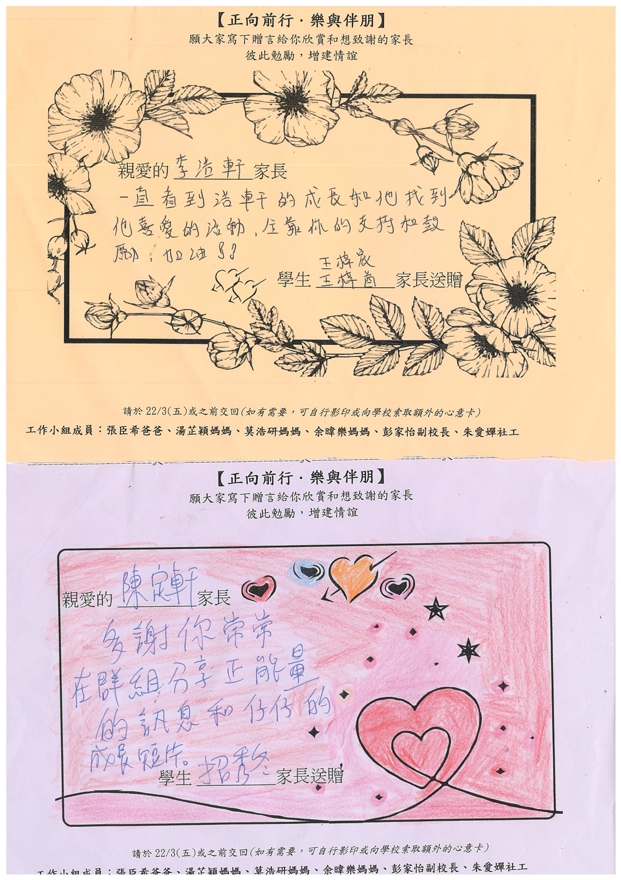 【正向前行．樂與伴朋】
願大家寫下贈言給你欣賞和想致謝的家長
彼此勉勵，增建情誼
親愛的 李浩軒 家長
一直看到浩軒的成長和他找到
他喜愛的活動，全靠你的支持和鼓
勵！加油!!
王梓
王梓
學生 家長送贈
請於 22/3(五)或之前交回(如有需要，可自行影印或向學校索取額外的心意卡)
工作小組成員：張臣希爸爸、湯芷穎媽媽、莫浩研媽媽、余暐樂媽媽、彭家怡副校長、朱愛嬋社工
【正向前行．樂與伴朋】
願大家寫下贈言給你欣賞和想致謝的家長
彼此勉勵，增建情誼
親愛的 陳定軒 家長
多謝你常常
在群組分享正能量
的訊息和仔仔的
成長短片。
學生 招秀冬 家長送贈
請於 22/3(五)或之前交回(如有需要，可自行影印或向學校索取額外的心意卡)
工作小組成員：張臣希爸爸、湯芷穎媽媽、莫浩研媽媽、余暐樂媽媽、彭家怡副校長、朱愛嬋社工